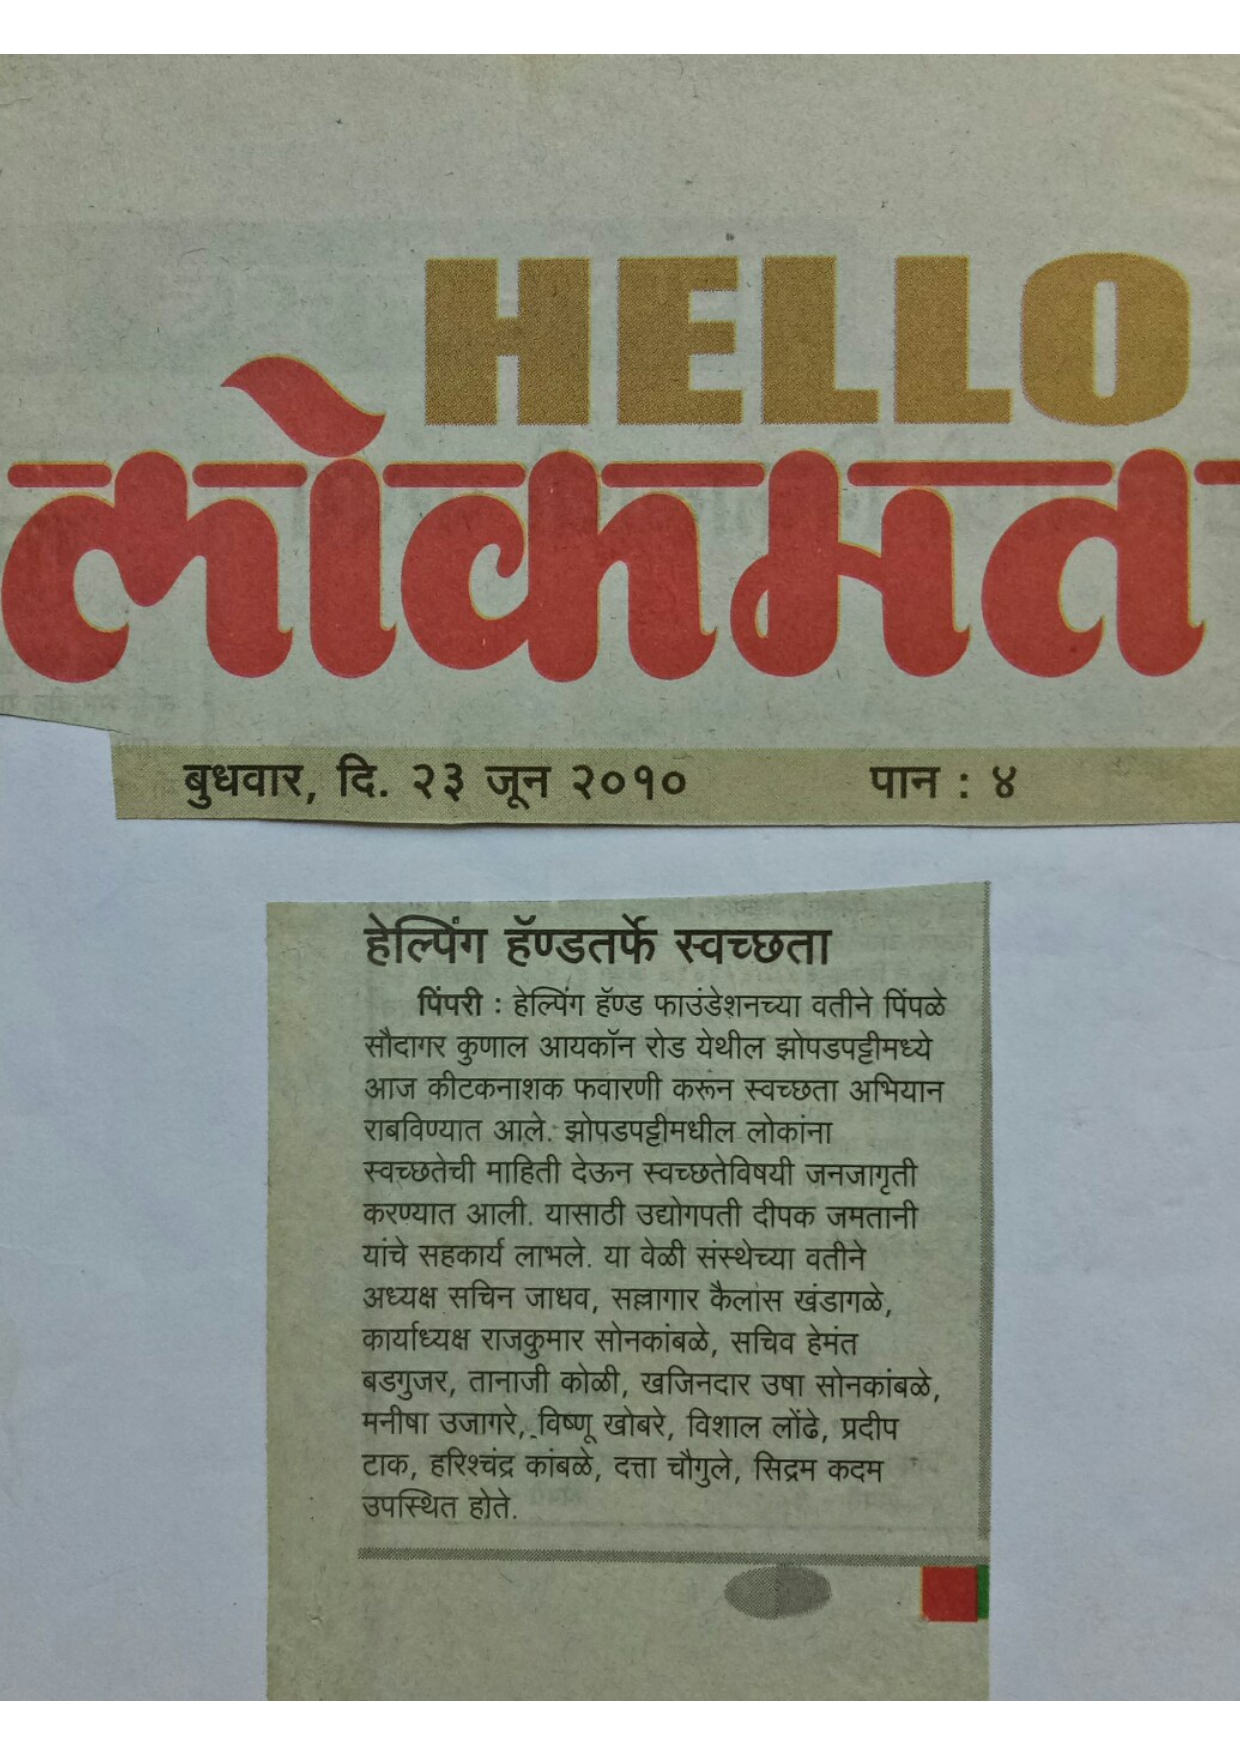 HELLO
लोकमत
बुधवार, दि. २३ जून २०१० पान : ४
हेल्पिंग हॅण्डतर्फे स्वच्छता
पिंपरी : हेल्पिंग हॅण्ड फाउंडेशनच्या वतीने पिंपळे
सौदागर कुणाल आयकॉन रोड येथील झोपडपट्टीमध्ये
आज कीटकनाशक फवारणी करून स्वच्छता अभियान
राबविण्यात आले. झोपडपट्टीमधील लोकांना
स्वच्छतेची माहिती देऊन स्वच्छतेविषयी जनजागृती
करण्यात आली. यासाठी उद्योगपती दीपक जमतानी
यांचे सहकार्य लाभले. या वेळी संस्थेच्या वतीने
अध्यक्ष सचिन जाधव, सल्लागार कैलास खंडागळे,
कार्याध्यक्ष राजकुमार सोनकांबळे, सचिव हेमंत
बडगुजर, तानाजी कोळी, खजिनदार उषा सोनकांबळे,
मनीषा उजागरे, विष्णू खोबरे, विशाल लोंढे, प्रदीप
टाक, हरिश्चंद्र कांबळे, दत्ता चौगुले, सिद्रम कदम
उपस्थित होते.